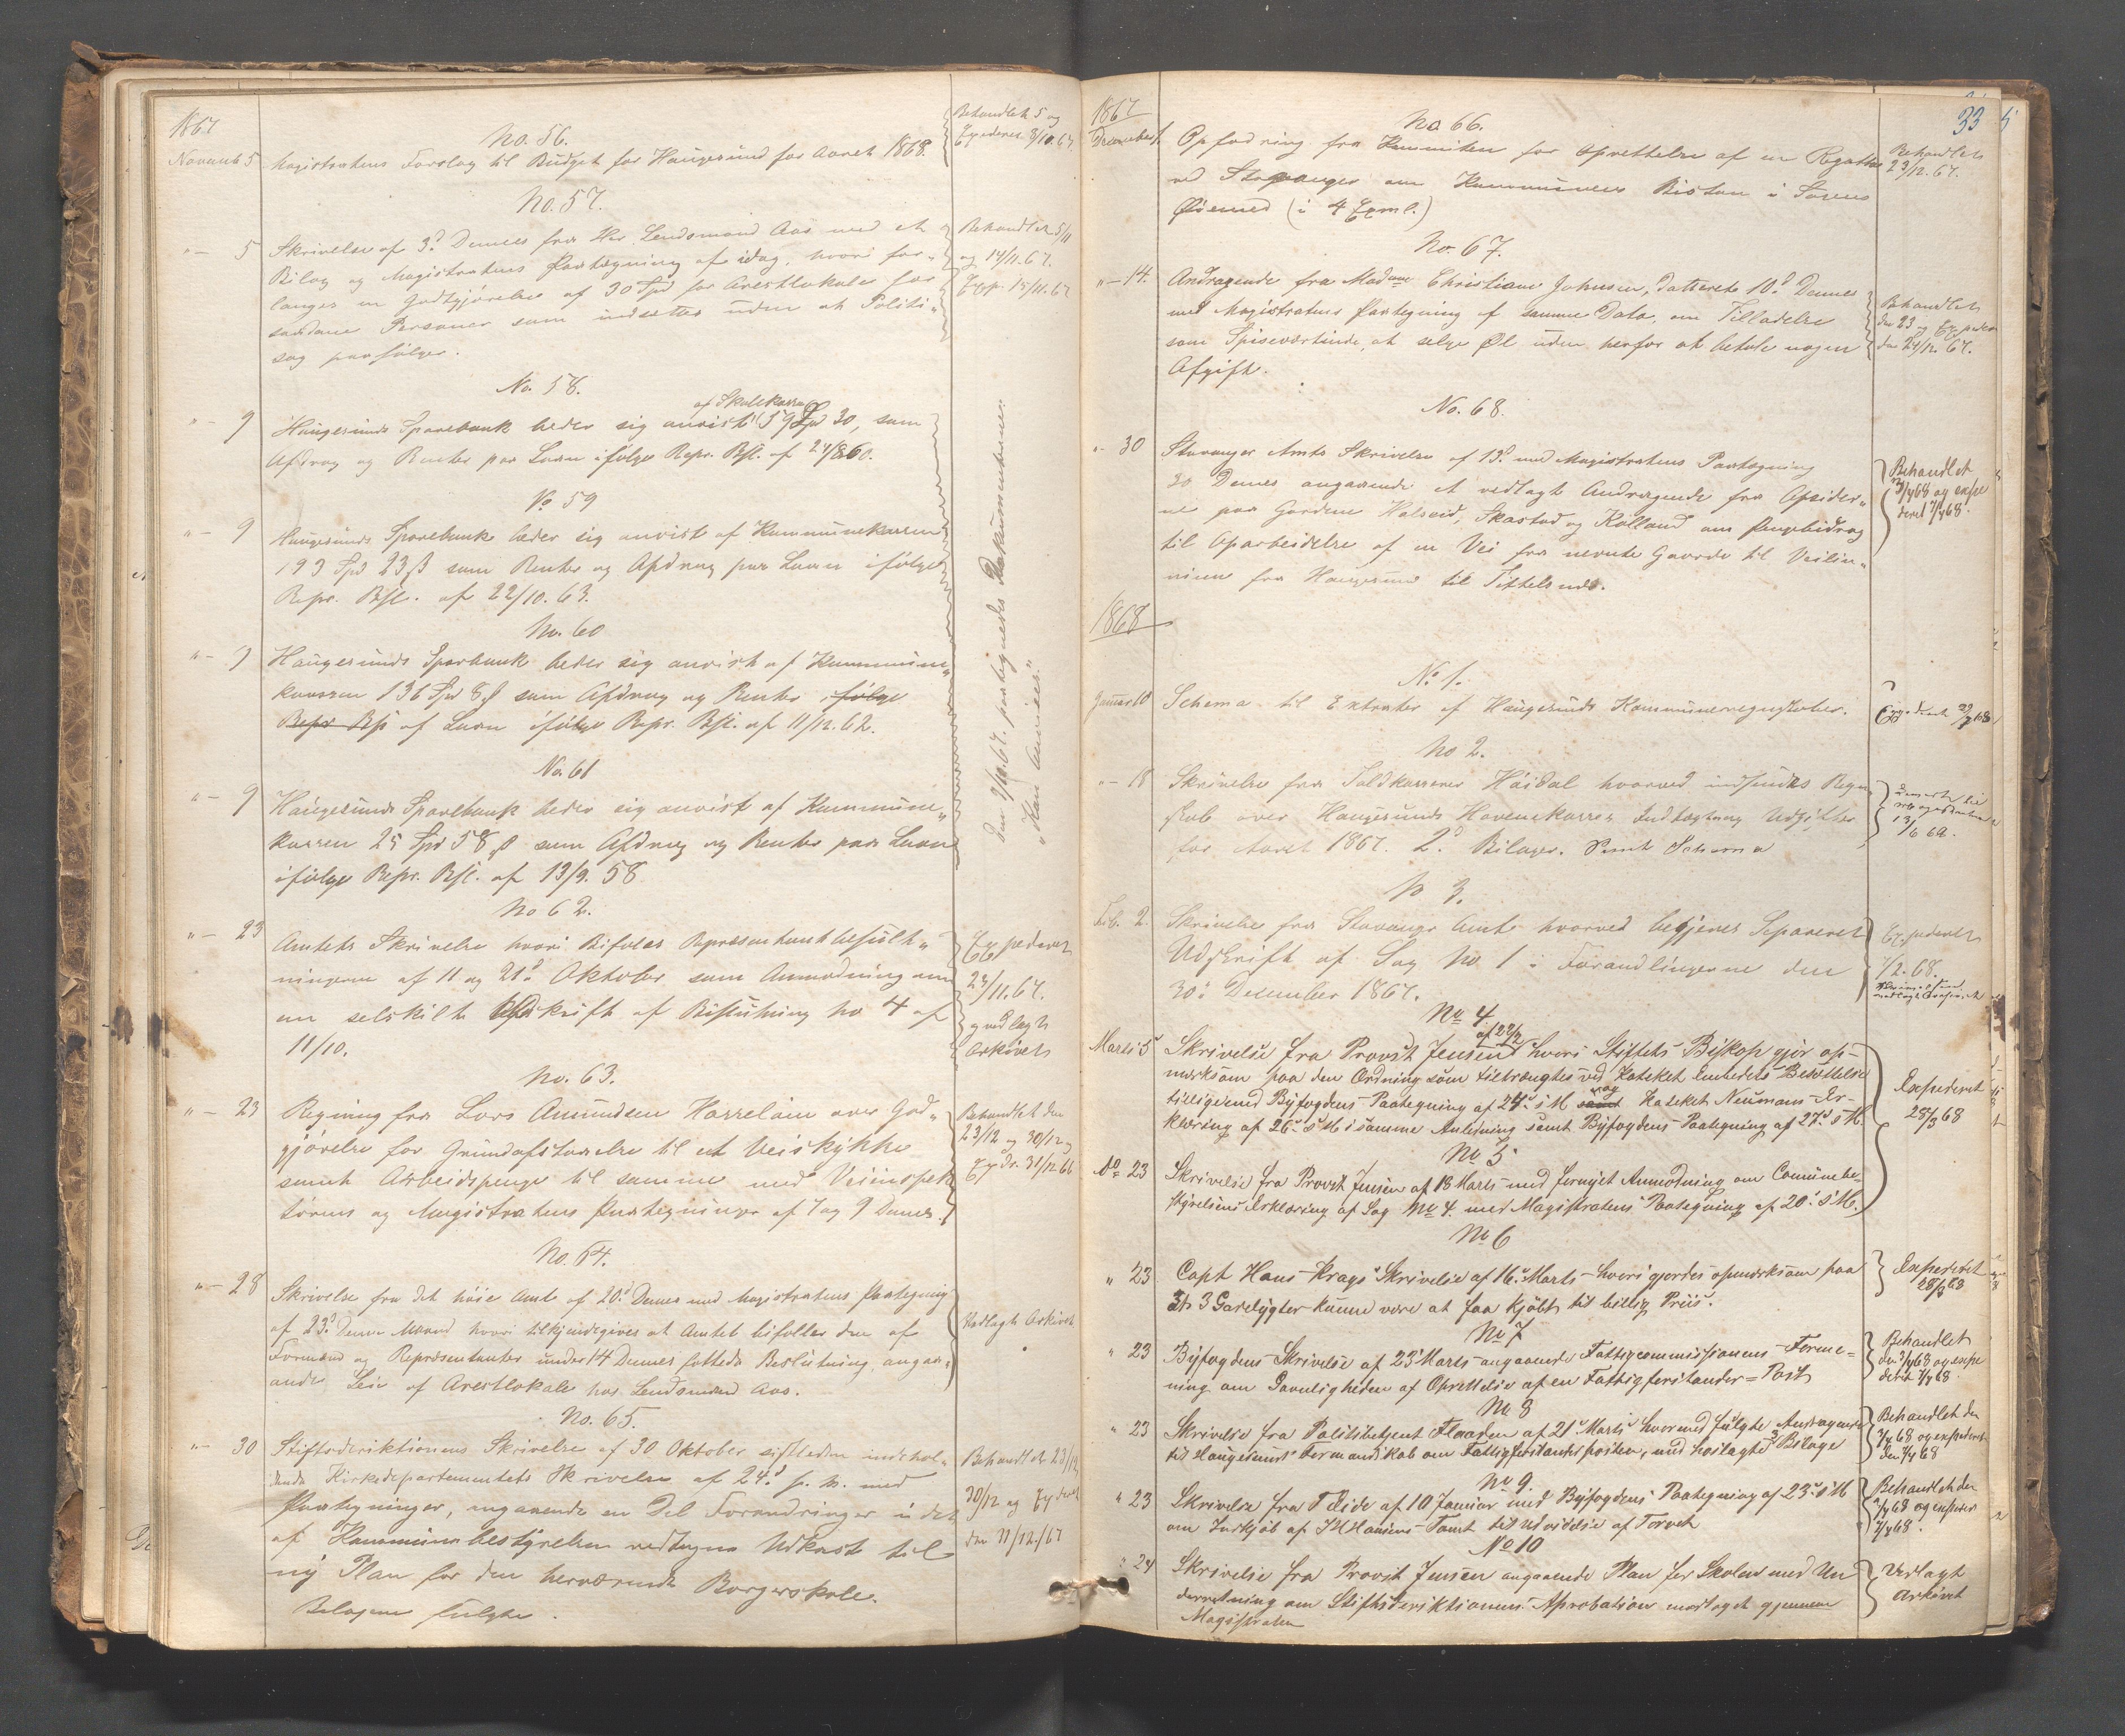 1867
No. 56.
Novemb 5 Magistratens Forslag til Budget for Haugesund for Aaret 1868.
Behandlet 5 og
Expederet 8/10.67
No. 57.
"— 5 Skrivelse af 3d Dennes fra Hr. Lendsmand Aas med et
Bilag og Magistratens Paategning af idag, hvori for„
langes en Godtgjørelse af 30 Spd for Arestlokale for
saadane Personer som indsettes uden at Politi„
sag paafølger.
Behandlet 5/11
og 14/11.67.
Exp. 15/11.67
No. 58.
af Skolekassen
"— 9 Haugesunds Sparebank beder sig anvist 59 Spd 30, som
Afdrag og Renter paa Laan ifølge Repr. Bsl. af 24/8.60.
No 59
"— 9 Haugesunds Sparebank beder sig anvist af Kommunekassen
193 Spd 23 ß som Renter og Afdrag paa Laan ifølge
Repr. Bsl. af 22/10.63.
No. 60
"— 9 Haugesunds Sparbank beder sig anvist af Kommune„
kassen 136 Spd 8 ß som Afdrag og Renter ifølge
Repr Bsl af Laan ifølge Repr. Bsl. af 11/12.62.
No. 61
"— 9 Haugesunds Sparebank beder sig anvist af Kommune„
kassen 25 Spd 58 ß som Afdrag og Renter paa Laan
ifølge Repr. Bsl. af 13/9.58
Den 9/10.67. paategnedes Dokumenterne:
„Kan anvises."
No 62.
"— 23 Amtets Skrivelse hvori Bifales Repræsentantbeslut„
ningerne af 11 og 21d Oktober som Anmodning om
en selskilt Udskrift af Beslutning No 4 af
11/10.
Expederet
23/11.67.
og vedlagt
Arkivet
No. 63.
"— 23 Regning fra Lars Amundsen Hasseløen over God„
gjørelse for Grundafstaaelse til et Veistykke
samt Arbeidspenge til samme med Veiinspek
tørens og Magistratens Paategninger af 7 og 9 Dennes.
Behandlet den
23/12 og 30/12 og
Expdr. 31/12 66
No. 64.
"— 28 Skrivelse fra det høie Amt af 20d Dennes med Magistratens Paategning
af 23d Denne Maaned hvori tilkjendegives at Amtet bifalder den af
Formænd og Repræsentanter under 14 Dennes fattede Beslutning angaa„
ende Leie af Arestlokale hos Lendsmand Aas.
Vedlagt Arkivet
No. 65.
"— 30 Stiftsderiktionens Skrivelse af 30 Oktober sistleden indehol„
dende Kirkedepartementets Skrivelse af 24d s. M. med
Paategninger, angaaende en Del Forandringer i det
af Kommunebestyrelsen vedtagne Udkast til
ny Plan for den herværende Borgerskole.
Bilagene fulgte.
Behandlet 23/12
30/12 og Expederet
den 31/12./67
33
1867
No 66.
December 1 Opfodring fra Kommiteen for Oprettelse af en Regatta
ved Stavanger om Kommunens Bistan i Sagens
Øiemed (i 4 Exmpl.)
Behandlet
23/12.67.
No. 67.
"— 14. Andragende fra Madme Christiane Johnsen, datteret 10d Dennes
med Magistratens Paategning af samme Dato, om Tilladelse
som Spiseværtinde, at selge Øl uden herfor at betale nogen
Afgift.
Behandlet
den 23 og Expederet
den 24/12.67.
No. 68.
"— 30 Stavanger Amts Skrivelse af 13d med Magistratens Paategning
30 Dennes angaaende et vedlagt Andragende fra Opsider„
ne paa Gardene Halseid, Skastad og Kalland om Pengebidrag
til Oparbeidelse af en Vei fra nevnte Gaarde til Veilin„
nien fra Haugesund til Tittelsnæs.
Behandlet
3/4 68 og expe
deret 7/4 68.
1868
No 1.
Januar 10 Schema til Extrakter af Haugesunds Kommuneregnskaber.
Expederet
No 2.
"— 18 Skrivelse fra Toldkasserer Höidal hvorved indsendes Regn„
skab over Haugesunds Havnekasses Indtægt og Udgifter
for Aaret 1867. 2d Bilager. Samt Schema
No 3.
Feb. 2 Skrivelse fra Stavanger Amt hvorved begjeres Separeret
Udskrift af Sag No 1 i Forandlingerne den
30d December 1867.
Expederet
/2.68.
No 4
af 22/2
Marts 5 Skrivelse fra Provst Jensen hvori Stiftets Biskop gjør op-
mærksom paa den Ordning som tiltrængtes ved Kateket Embedets Besættelse
tilligemed Byfogdens Paategning af 24d s M samt og Kateket Neumans Er-
klæring af 26d s M i samme Anledning samt Byfogdens Paategning af 27d s M.
Expederet
28/3 68
No 5
Do 23 Skrivelse fra Provst Jensen af 18 Marts med fornyet Anmodning om Comünebe-
styrelsens Erklæring af Sag No 4. med Magistratens Paategning af 20d s M.
No 6
" 23 Capt Hans Krags Skrivelse af 16d Marts hvori gjordes opmærksom paa
at 3 Gaselygter kunne være at faa kjøbt til billig Priis.
Expederet
28/3 68
No 7
" 23 Byfogdens Skrivelse af 23d Marts angaaende Fattigcommissionens Forme=
ning om Gavnligheden af Oprettelse af en Fattigforstander=Post
Behandlet
den 3/4 68 og expe
deret 7/4 68
No 8
" 23 Skrivelse fra Politibetjent Flaaden af 21d Marts hvormed fulgte Andragende
til Haugesunds Formandskab om Fattigforstanderposten, med hoslagte 3 Bilage
Behandlet den
3/4 68 og expederet
den 7/4 68
No 9.
" 23 Skrivelse fra Eide af 10 Januar med Byfogdens Paategning af 23d s M
om Indkjøb af Hansens Tomt til Udvidelse af Torvet
Behandlet den
3/4 68 og expederet
7/4 68.
No 10
" 24 Skrivelse fra Provst Jensen angaaende Plan for Skolen med Un
derretning om Stiftsderiktionens Aprobation modtaget gjennem
Magistraten
Vedlagt
Arkivet